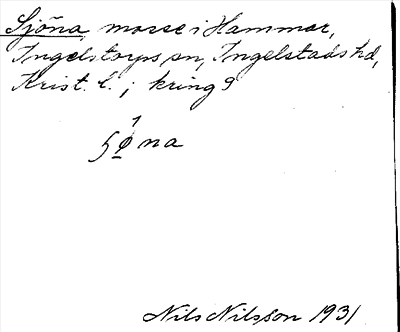 Sjöna, mosse i Hammar,
Ingelstorps sn, Ingelstads hd,
Krist. l. ; kring 9
Nils Nilsson 1931